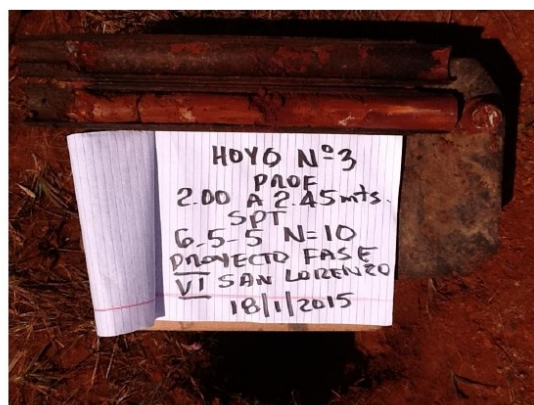 HOYO Nº3
PROF
2.00 A 2.45 mts.
SPT
6-5-5 N=10
PROYECTO FASE
VI SAN LORENZO
18/1/2015